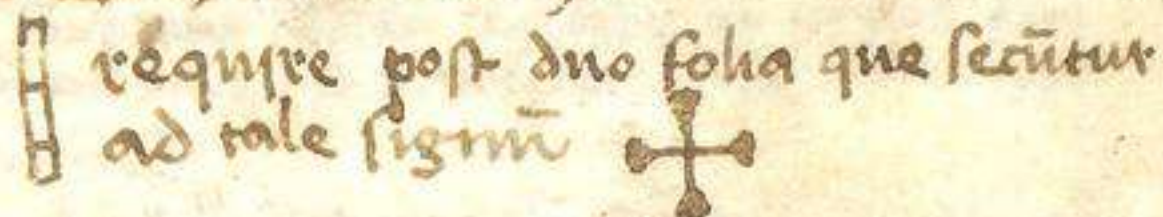 require post duo folia que secūtur
ad tale signū